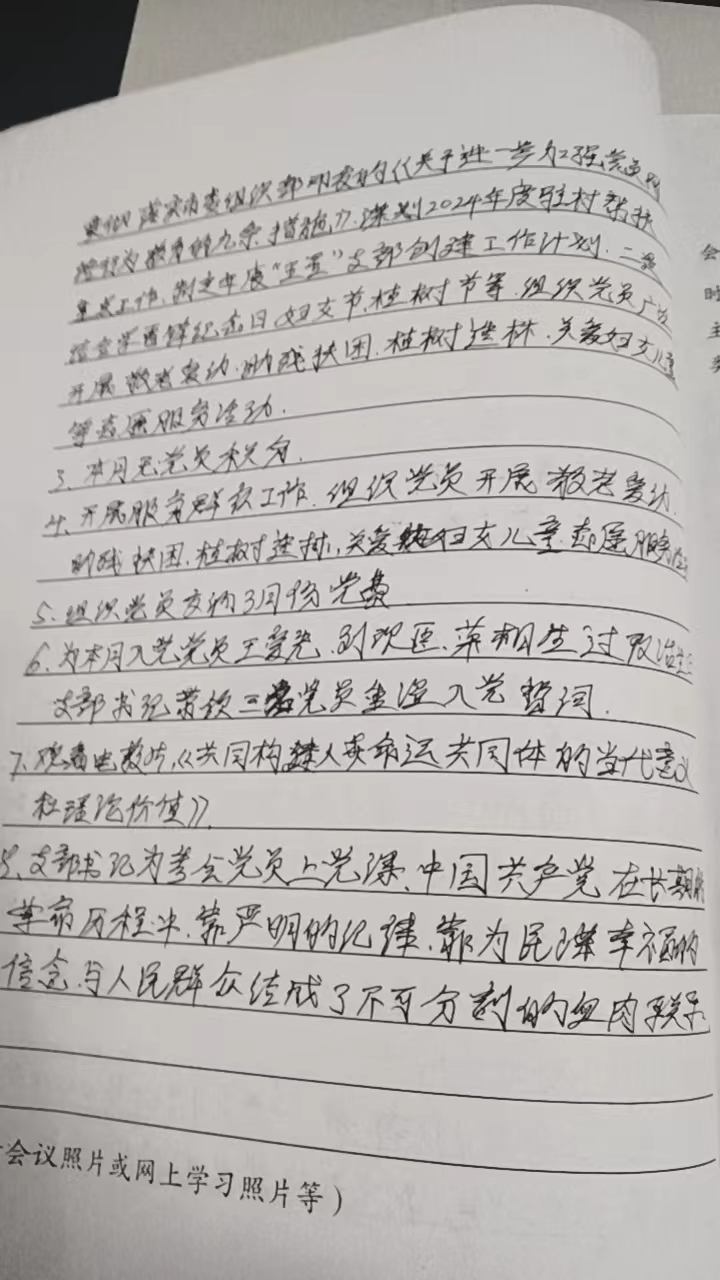 落实市委组织部印发的《关于进一步加强党员
教育的九条措施》.谋划2024年度驻村
重点工作,制定年度“五星”支部创建工作计划.二是
结合学雷锋纪念日、妇女节、植树节等.组织党员
开展敬老爱幼.助残扶困.植树造林.关爱妇女儿童
等志愿服务活动.
3、本月无党员积分.
4、开展服务群众工作.组织党员开展敬老爱幼.
助残扶困.植树造林,关爱妇女儿童志愿服务活动
5、组织党员交纳3月份党费
6、为本月入党党员王爱党、刘欢匡、菜相生过政治生日
支部书记带领三名党员重温入党誓词.
7、观看电教片,《共同构建人类命运共同体的当代意义
和理论价值》
8、支部书记为参会党员上党课、中国共产党在长期的
革命历程中.靠严明的纪律.靠为民谋幸福的
信念.与人民群众结成了不可分割的血肉联系
会议照片或网上学习照片等)
会
时
主